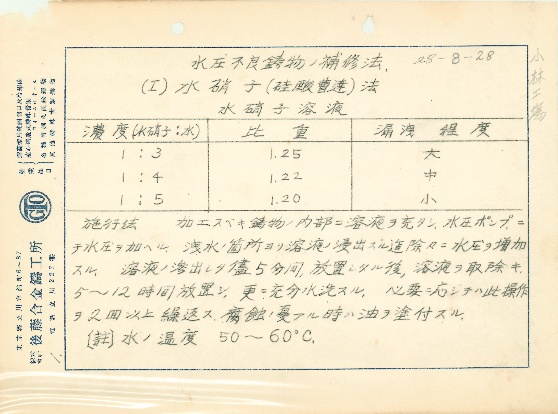 水圧不良鋳物ノ補修法 25-8-28
小林工場
(I) 水硝子(硅酸曹達)法
水硝子溶液
濃度(水硝子:水) 比重 漏洩程度
1:3 1.25 大
1:4 1.22 中
1:5 1.20 小
施行法 加工スベキ鋳物ノ内部ニ溶液ヲ充タシ、水圧ポンプニ
テ水圧ヲ加ヘル 浅水ノ箇所ヨリ溶液ノ浸出スル迄除々ニ水圧ヲ増加
スル 溶液ノ滲出シタ儘5分間放置シタル後、溶液ヲ取除キ
5〜12時間放置シ、更ニ充分水洗スル 必要ニ応ジテハ此操作
ヲ2回以上繰返ス 腐蝕ノ憂アル時ハ油ヲ塗付スル
(註) 水ノ温度 50〜60°C.
GTO
後藤合金鑄工所